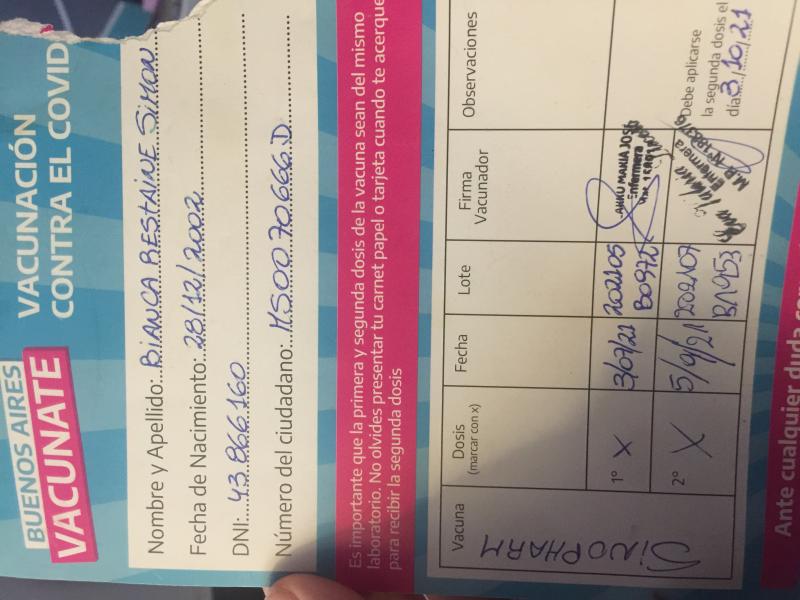 BUENOS AIRES
VACUNATE
VACUNACIÓN
CONTRA EL COVID
Nombre y Apellido: BIANCA RESTAINE SIMON
Fecha de Nacimiento: 28/12/2002
DNI: 43 866 160
Número del ciudadano: M50070666D
Es importante que la primera y segunda dosis de la vacuna sean del mismo
laboratorio. No olvides presentar tu carnet papel o tarjeta cuando te acerque
para recibir la segunda dosis
Vacuna Dosis Fecha Lote Firma Observaciones
(marcar con x) Vacunador
SINOPHARM
1° X 3/07/21 202105
Enfermera
2° X 5/9/21 202107
B21053
Enfermera
Debe aplicarse
la segunda dosis el
día: 3/10/21
Ante cualquier duda